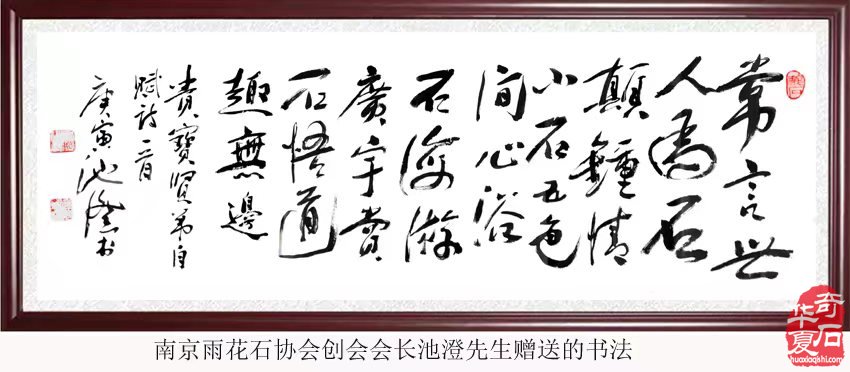 常言世
人為石
顛鍾情
小石五色
間心浴
石海游
廣宇賞
石悟道
趣無邊
貴寶賢弟自
賦詩一首
庚寅池澄书
南京雨花石协会创会会长池澄先生赠送的书法
华夏
奇石
huaxiaqishi.com